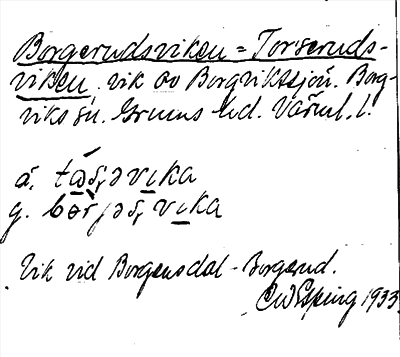 Borgerudsviken = Torseruds-
viken, vik av Borgvikssjön. Borg-
viks sn. Grums hd. Värml. l.
a.
g.
Vik vid Borgensdal - Borgerud.
CWEsping 1933.